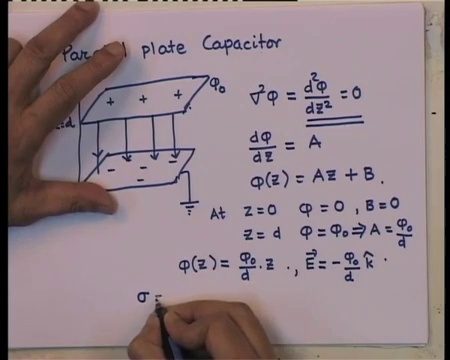 Parallel plate Capacitor
+ + +
φ₀
z=d
- - -
- -
∇²φ = d²φ/dz² = 0
dφ/dz = A
φ(z) = Az + B.
At z=0 φ=0, B=0
z=d φ=φ₀ ⇒ A = φ₀/d
φ(z) = φ₀/d · z ., E⃗ = - φ₀/d k̂ .
σ =